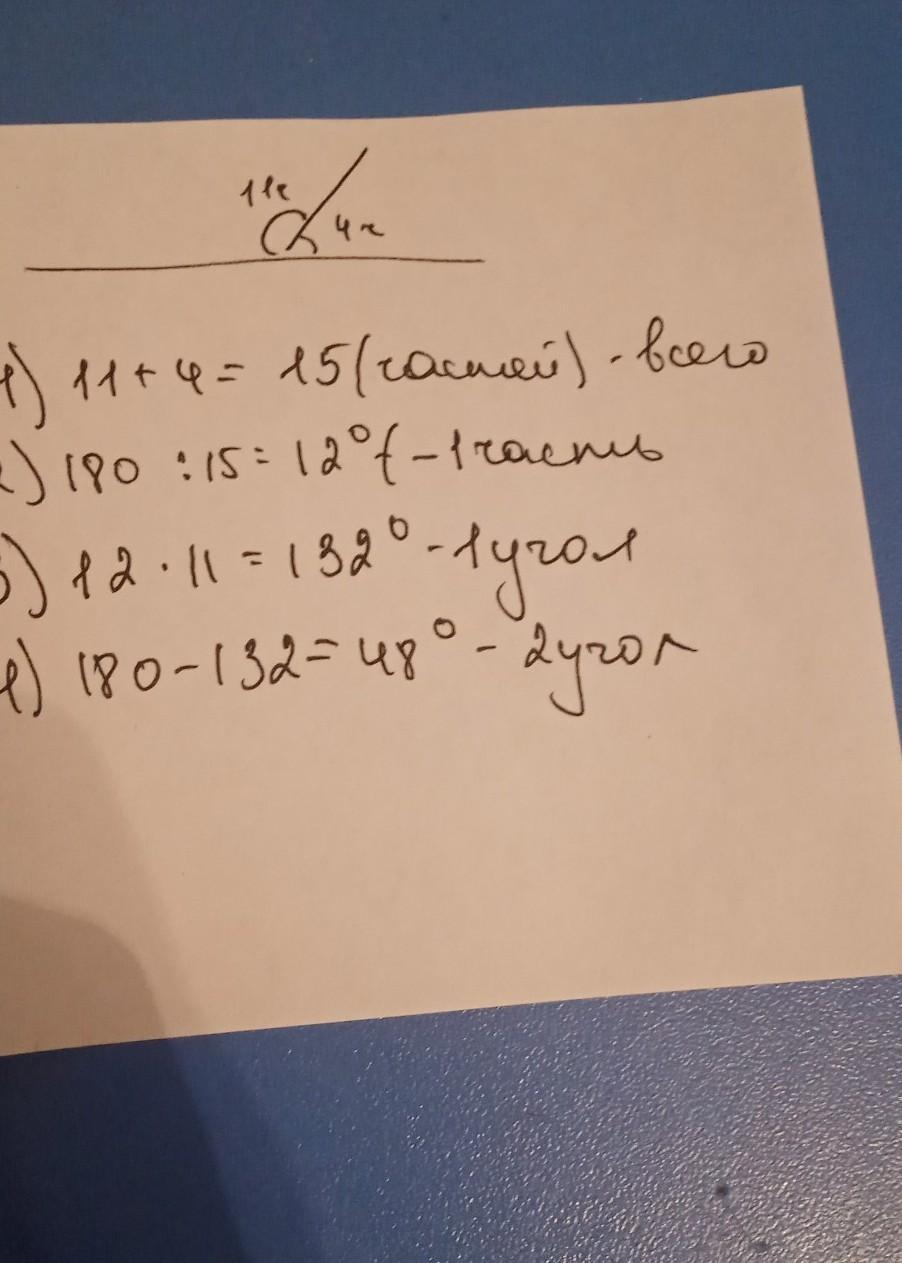 11x
4x
1) 11+4= 15 (частей) - всего
2) 180 : 15 = 12° ( - 1 часть
3) 12 · 11 = 132° - 1 угол
4) 180 - 132 = 48° - 2 угол